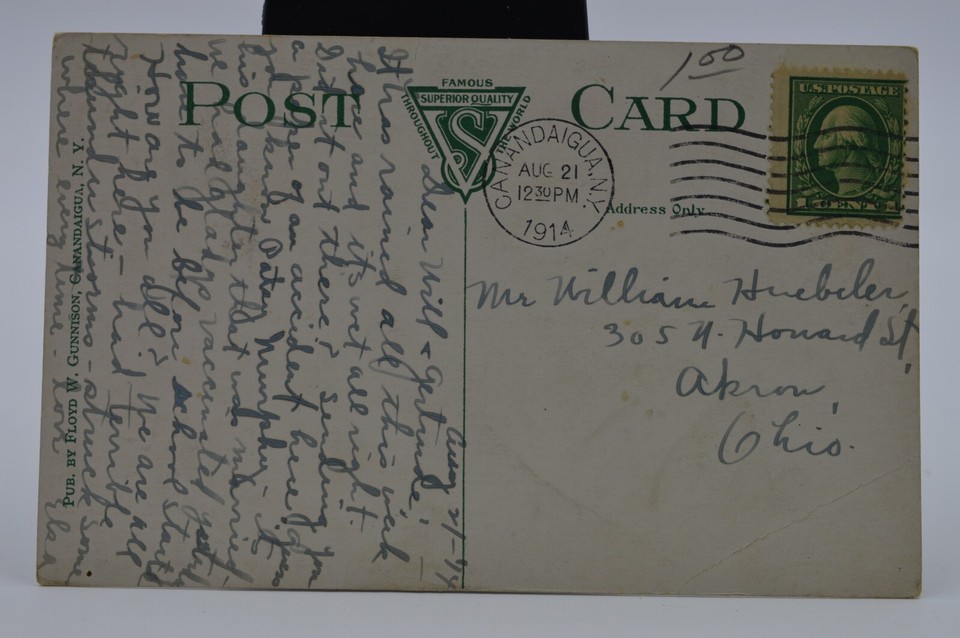 1.00
POST CARD
FAMOUS
SUPERIOR QUALITY
THROUGHOUT THE WORLD
CANANDAIGUA, N.Y.
AUG 21
12 30 PM
1914
U.S. POSTAGE
Address Only
Mr William Huebeler,
305 N. Howard St,
Akron,
Ohio.
PUB. BY FLOYD W. GUNNISON, CANANDAIGUA, N. Y.
Aug 21-14
Dear Will & Gertrude,
It has rained all this week
here and its wet all right
Did it out there? Sending you
a paper of an accident here
Murphy - it
his daughter that was married
we had Glad vaccinated
had to be before school starts
How are you all? We are all
right here - had terrible
thunder storms - struck some
where every time -